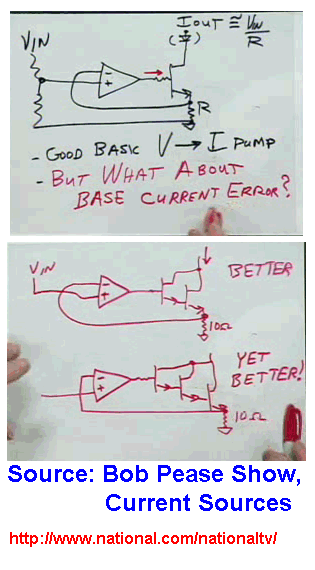 IOUT ≅ VIN/R
VIN
( )
-
+
R
- GOOD BASIC V → I PUMP
- BUT WHAT ABOUT
BASE CURRENT ERROR?
VIN
BETTER
-
+
10Ω
YET
BETTER!
-
+
10Ω
Source: Bob Pease Show,
Current Sources
http://www.national.com/nationaltv/